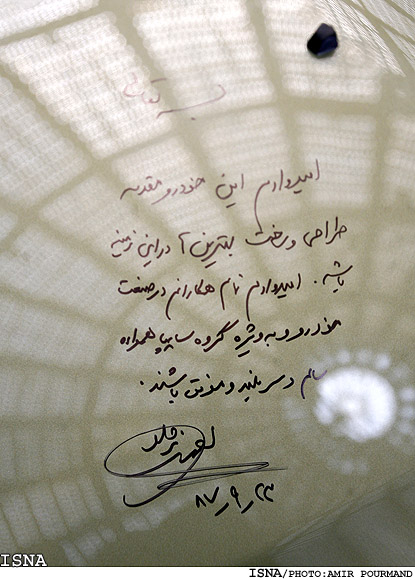 بسمه تعالی
امیدوارم این خودرو مقدمه
طراحی و ساخت بهترین‌ها در این زمینه
باشد. امیدوارم تمام همکاران در صنعت
خودرو و به ویژه گروه سایپا همواره
سالم و سربلند و موفق باشند.
۸۷/۹/۲۳
ISNA
ISNA/PHOTO:AMIR POURMAND